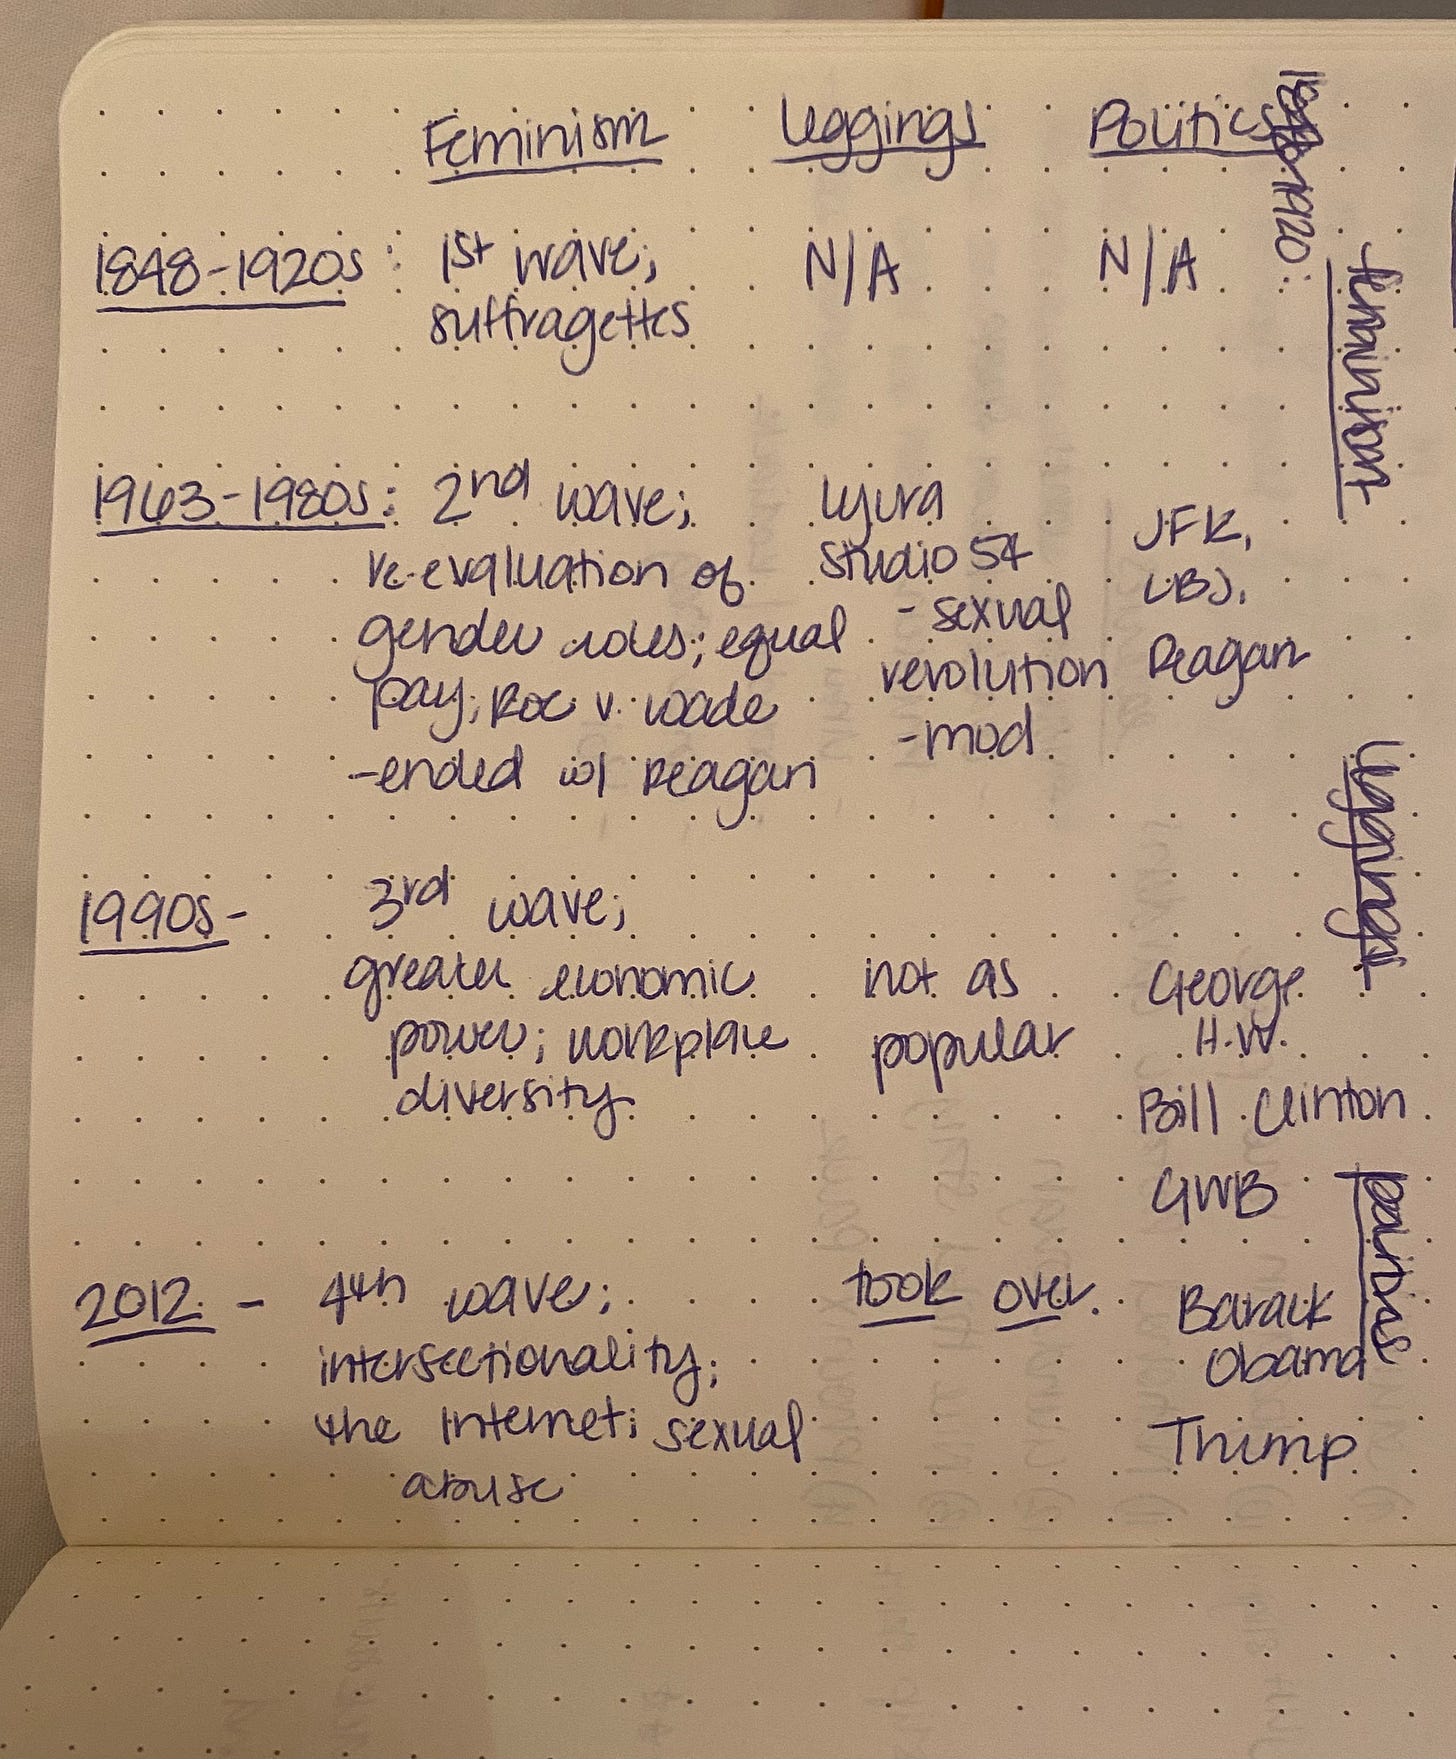 Feminism Leggings Politics
1848-1920s: 1st wave; N/A N/A
suffragettes
1963-1980s: 2nd wave; Lycra JFK,
re-evaluation of Studio 54 LBJ,
gender roles; equal - sexual Reagan
pay; Roe v. Wade revolution
-ended w/ Reagan -mod
1990s- 3rd wave;
greater economic not as George
power; workplace popular H.W.
diversity Bill Clinton
GWB
2012 - 4th wave; took over. Barack
intersectionality; Obama
the Internet; sexual Trump
abuse
1920:
feminism
Leggings
politics